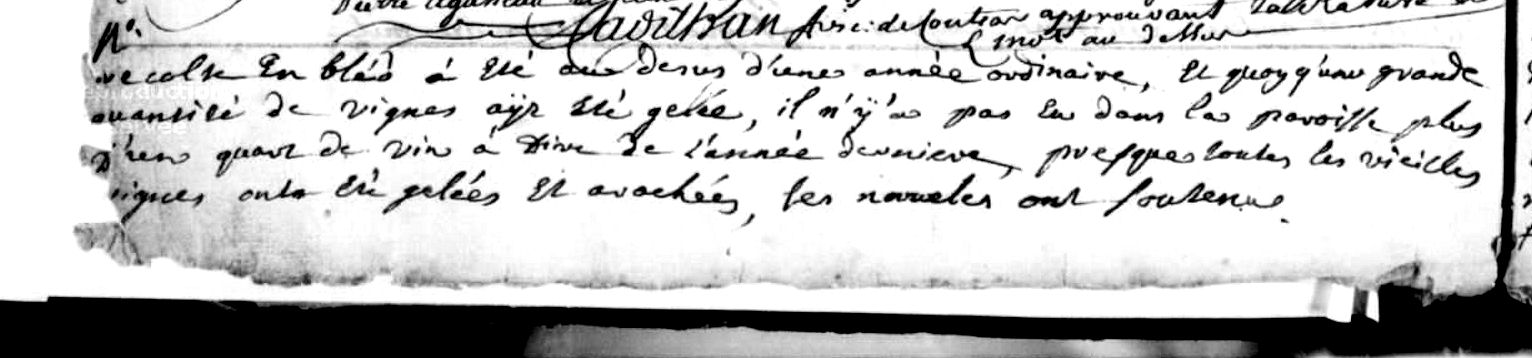 approuvant la rature
mot au dessus
recolte En bléd á Eté au desus d'une année ordinaire, Et quoyqu'une grande
quantité de vignes aÿt Eté gelée, il n'ÿ a pas Eu dans la paroisse plus
d'un quart de vin á Dire de L'année derniere, presques toutes les vieilles
vignes onts Eté gelées Et arachées, les nouveles ont soutenue.